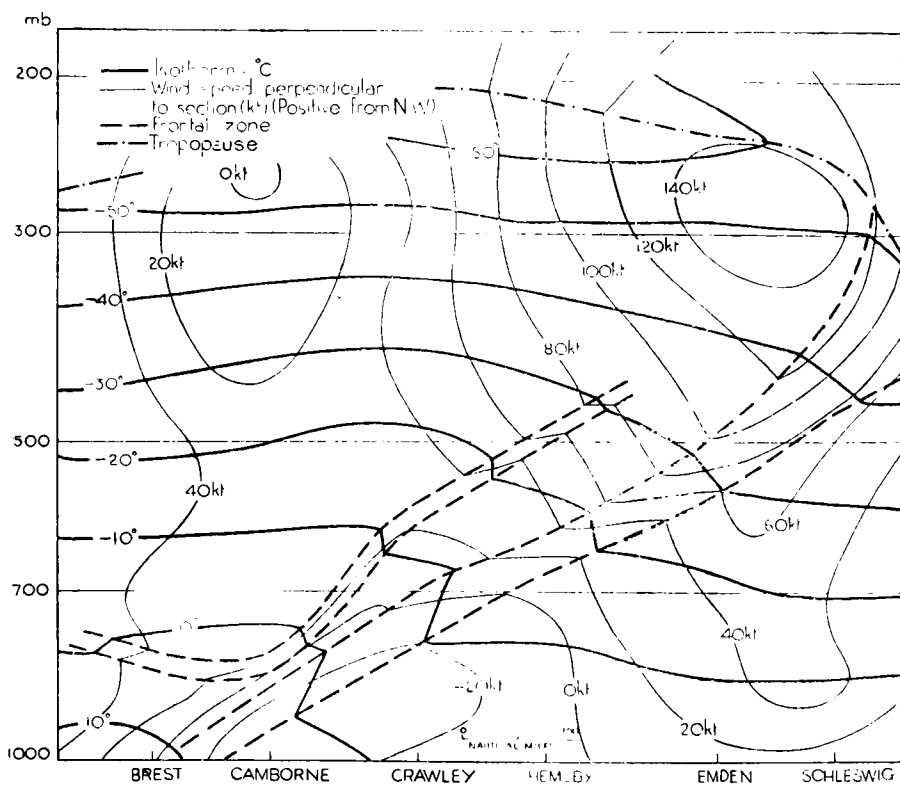 mb
200
300
500
700
1000
Isotherms °C
Wind speed perpendicular
to section (kt) (Positive from N.W)
Frontal zone
Tropopause
0kt
140kt
-50°
120kt
20kt
100kt
-40°
80kt
-30°
-20°
40kt
60kt
-10°
40kt
-20kt
0kt
10°
20kt
NAUTICAL MILES
BREST
CAMBORNE
CRAWLEY
HEMSBY
EMDEN
SCHLESWIG